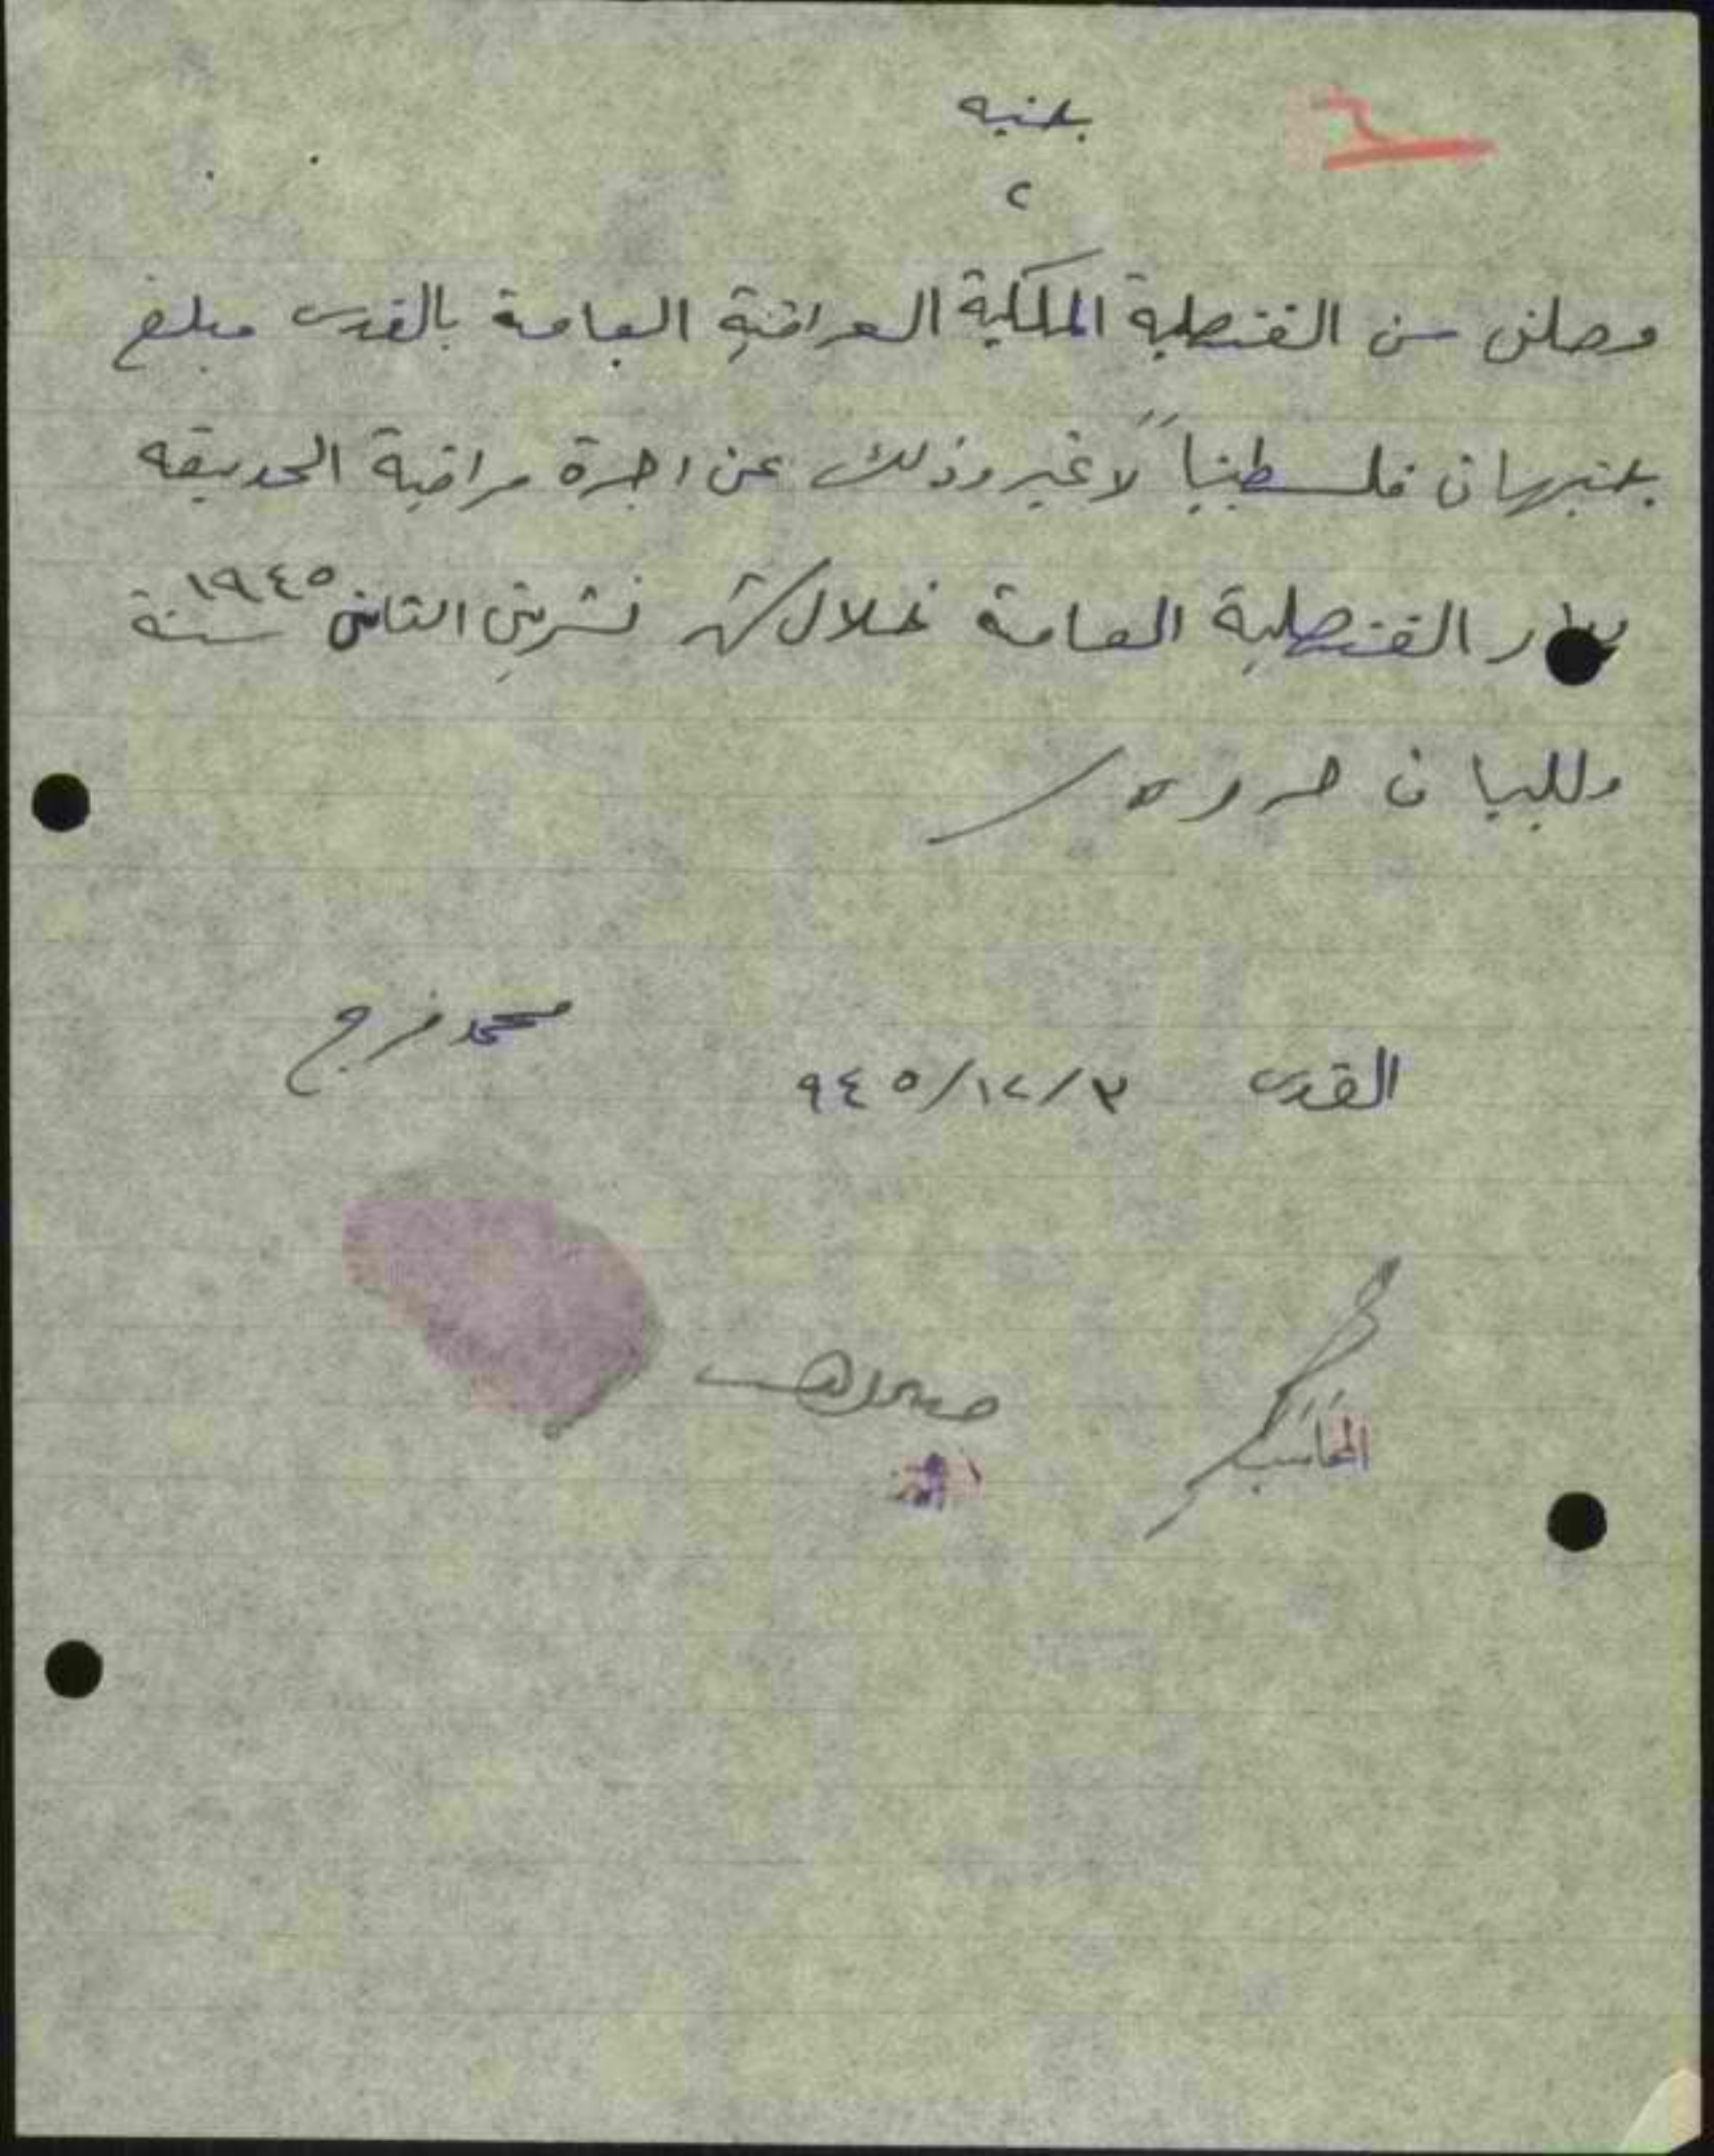 جنيه
٢
وصلني من القنصلية الملكية العراقية العامة بالقدس مبلغ
جنيهان فلسطينياً لا غير وذلك عن اجرة مراقبة الحديقه
بدار القنصلية العامة خلال شهر تشرين الثاني سنة ١٩٤٥
وللبيان حرر
محمد فرج
القدس ٣/١٢/٩٤٥
المحاسب